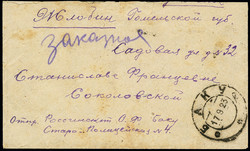 Жлобин Гомельской губ.
заказное
Садовая ул. д. 32
Станиславе Францевне
Соколовской
Отпр. О. Ф. Баку
Старо-Полицейская № 4
БАКУ
17 9 23